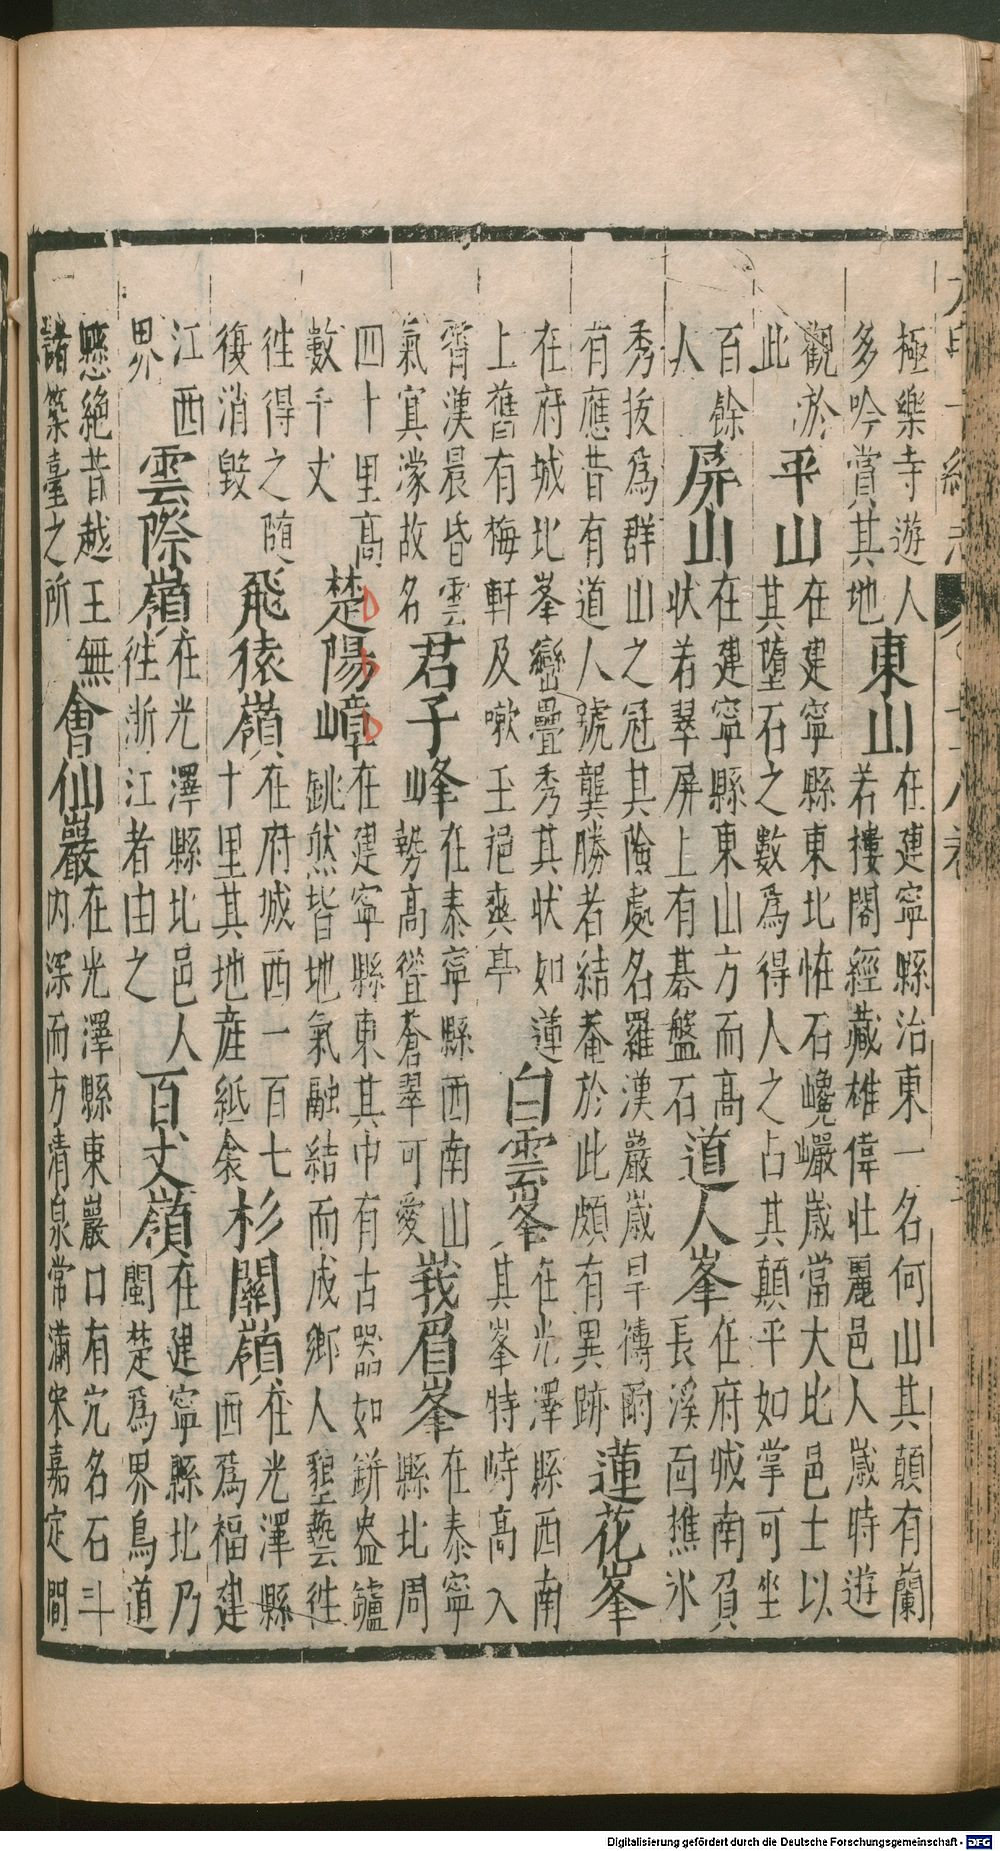 極樂寺遊人多吟賞其地東山在建寧縣治東一名何山其顛有蘭若樓閣經藏雄偉壯麗邑人歲時遊
觀於此平山在建寧縣東北恠石巉巗歲當大比邑士以其墮石之數爲得人之占其顛平如掌可坐
百餘人屏山在建寧縣東山方而高狀若翠屏上有碁盤石道人峯在府城南負長溪面樵水
秀拔爲群山之冠其險處名羅漢巖歲旱禱雨有應昔有道人號龔勝者結菴於此頗有異跡蓮花峯
在府城北峯巒疊秀其狀如蓮上舊有梅軒及嗽玉挹爽亭白雲峯在光澤縣西南其峯特峙高入
霄漢晨昏雲氣冥濛故名君子峰在泰寧縣西南山勢高聳蒼翠可愛莪眉峯在泰寧縣北周
四十里高數千丈楚陽嶂在建寧縣東其中有古器如缾盎鑪銚然皆地氣融結而成鄉人藝徃
徃得之隨復消毀飛猿嶺在府城西一百七十里其地產紙衾杉關嶺在光澤縣西爲福建
江西界雲際嶺在光澤縣北邑人徃浙江者由之百丈嶺在建寧縣北乃閩楚爲界鳥道
懸絕昔越王無諸築臺之所會仙巖在光澤縣東巖口有穴名石斗內深而方清泉常滿宋嘉定間
Digitalisierung gefördert durch die Deutsche Forschungsgemeinschaft - DFG